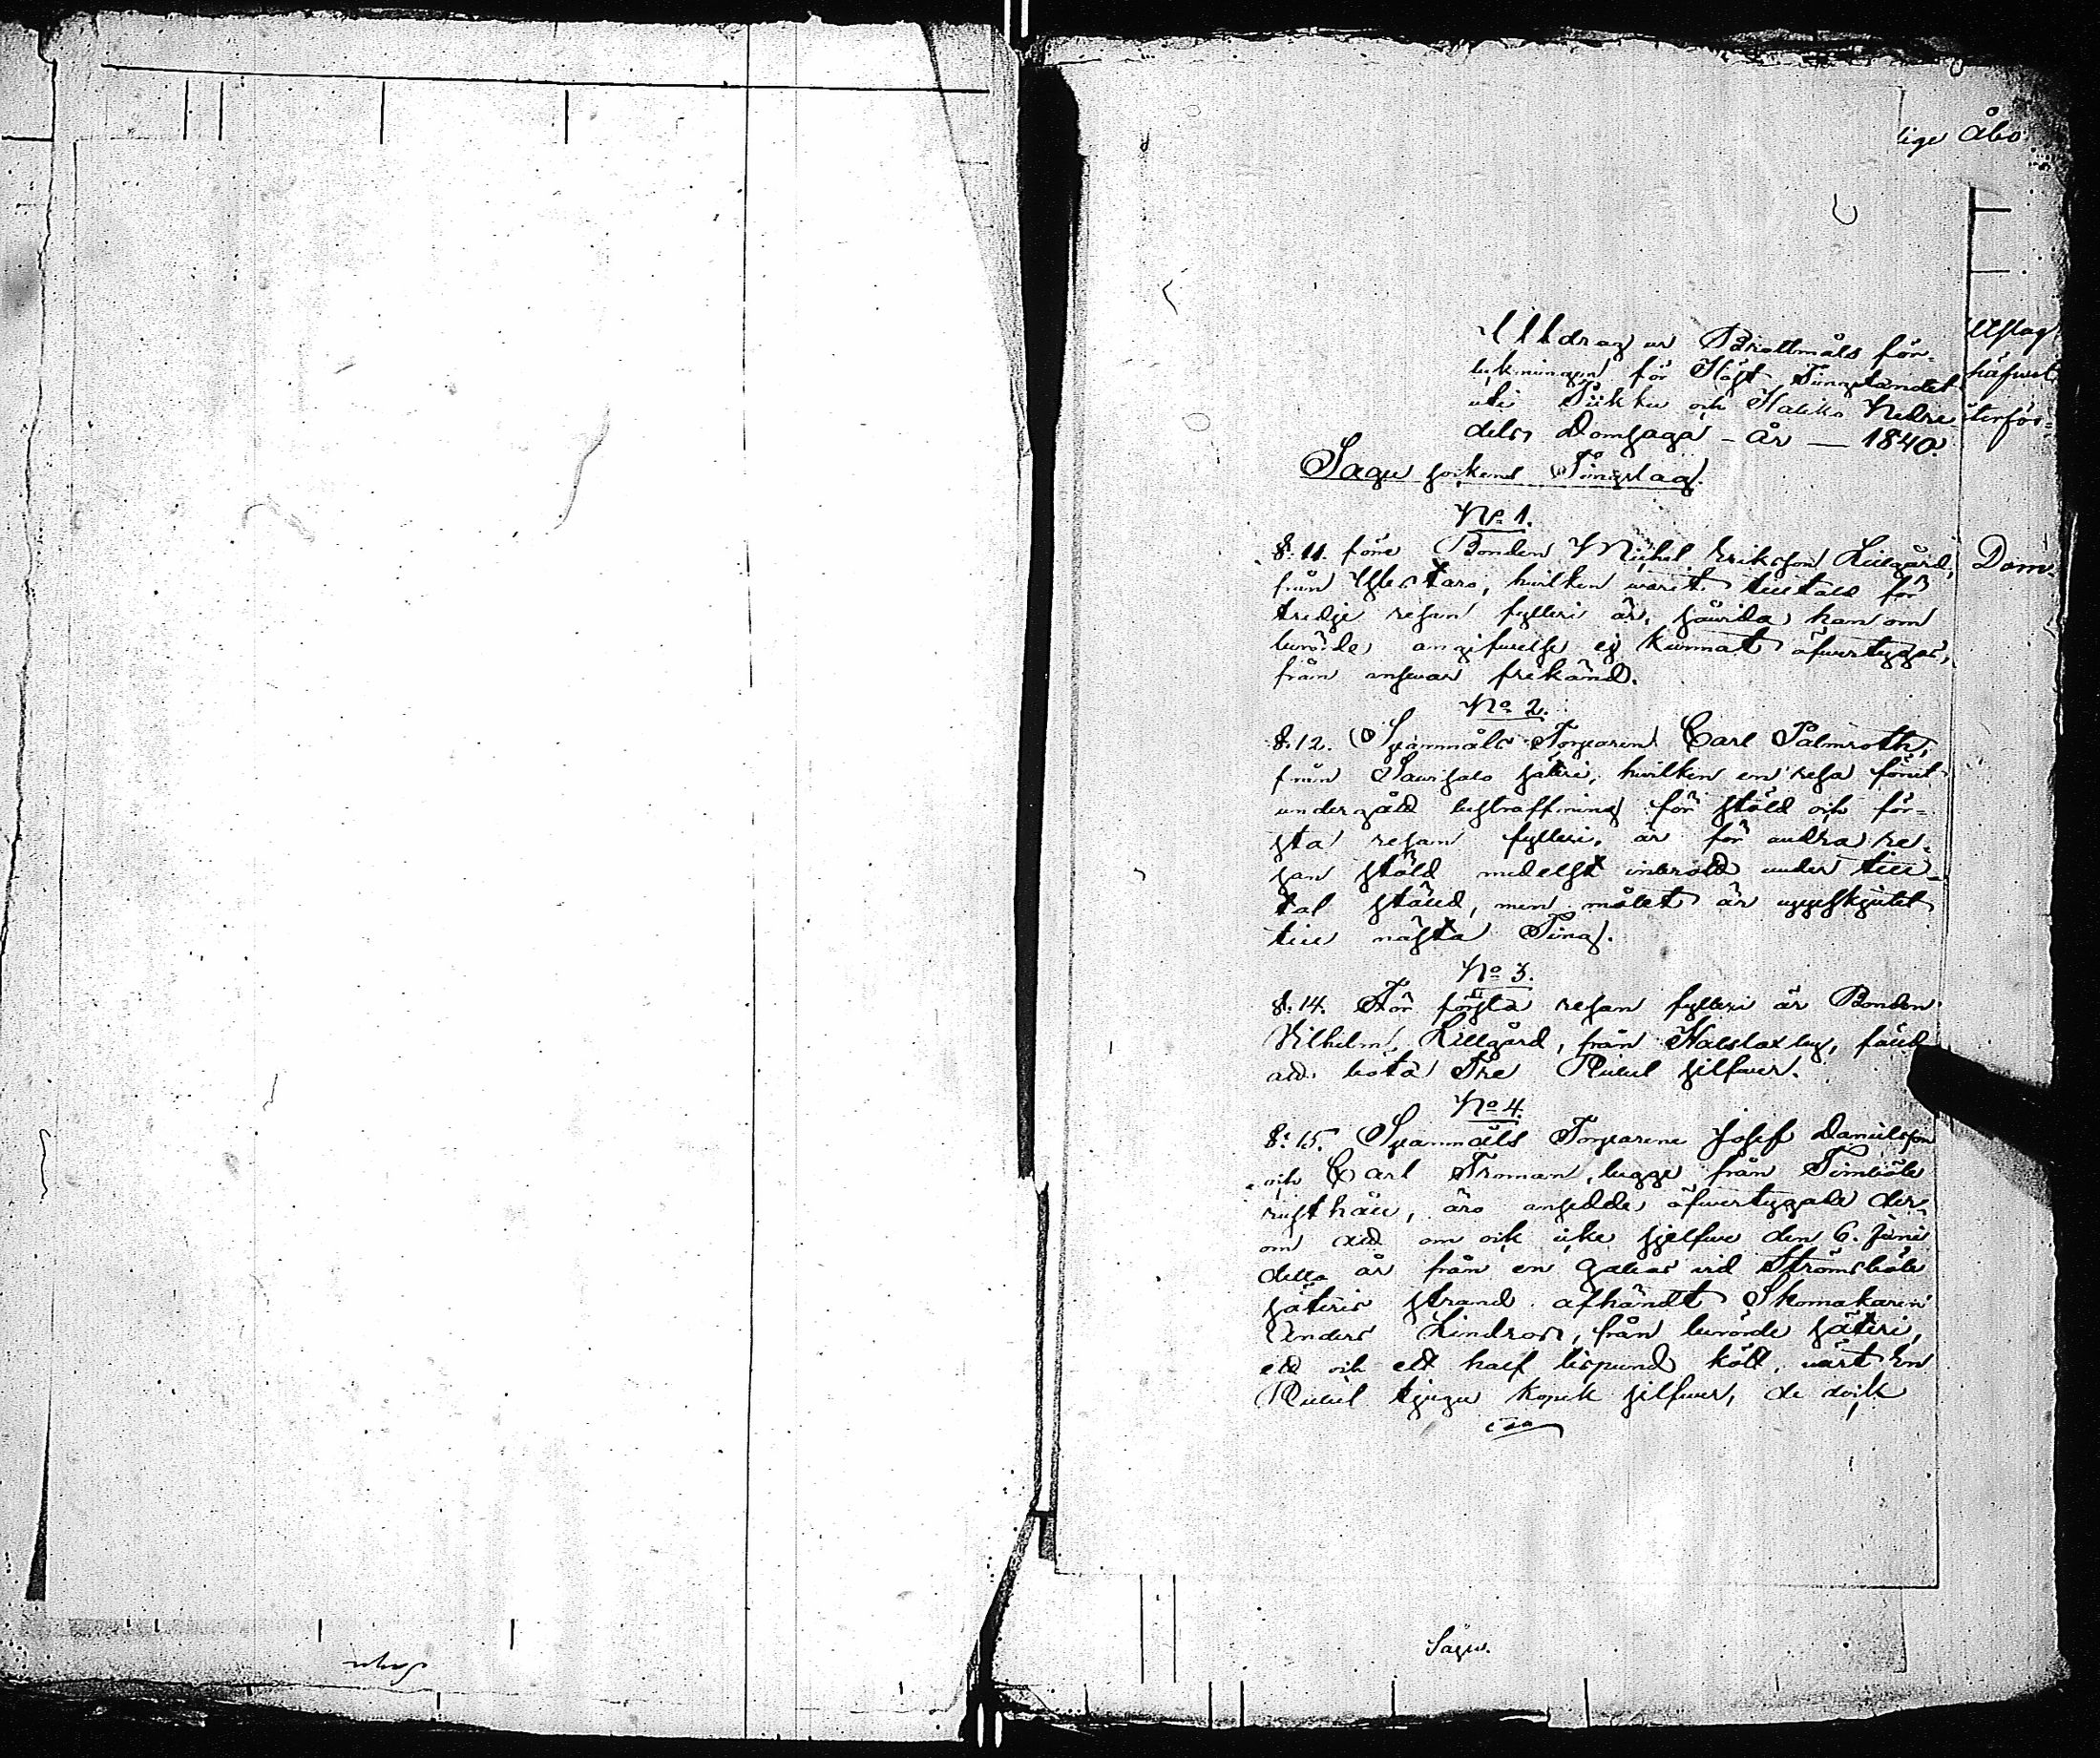 lige Åbo
Utdrag ur Brottmåls för-
tekningen för Höst Tingstandet
uti Piikkie och Haliko Nedre
dels Domsaga - år - 1840.
Utslag
häfwet
återför=
Sagu sokens Tingslag.
No 1.
§. 11. före Bonden Michel Eriksson Lillgård,
från taro, hvilken warit tilltald för
tredje resan fylleri är, såwida han om
berörde angifwelse ej kunnat öfwertygas,
från answar frikänd.
Dom.
No 2.
§. 12. Spannmåls Torparen Carl Palmroth,
från säteri, hvilken en resa förut
undergått bestraffning för stöld och för=
sta resan fylleri, är för andra re-
san stöld medelst inbrott under till-
tal stäld, men målet är uppskjutet
till nästa Ting.
No 3.
§. 14. För första resan fylleri är Bonden
Vilhelm Lillgård, från by, fäld
att böta Tre Rubel silfwer.
No 4.
§. 15. Spannmåls Torparene Josef Danielsson
och Carl Froman, begge från Timböle
rusthåll, äro ansedde öfwertygade der-
om att om och icke sjelfwe den 6. Juni
detta år från en galeas wid Strömsböle
säteris strand afhändt Skomakaren
Anders Lindroos, från berörde säteri,
ett och ett half lispund kött, wärt En
Rubel tjugu kopek silfwer, de dock
Sagu.
Sagu